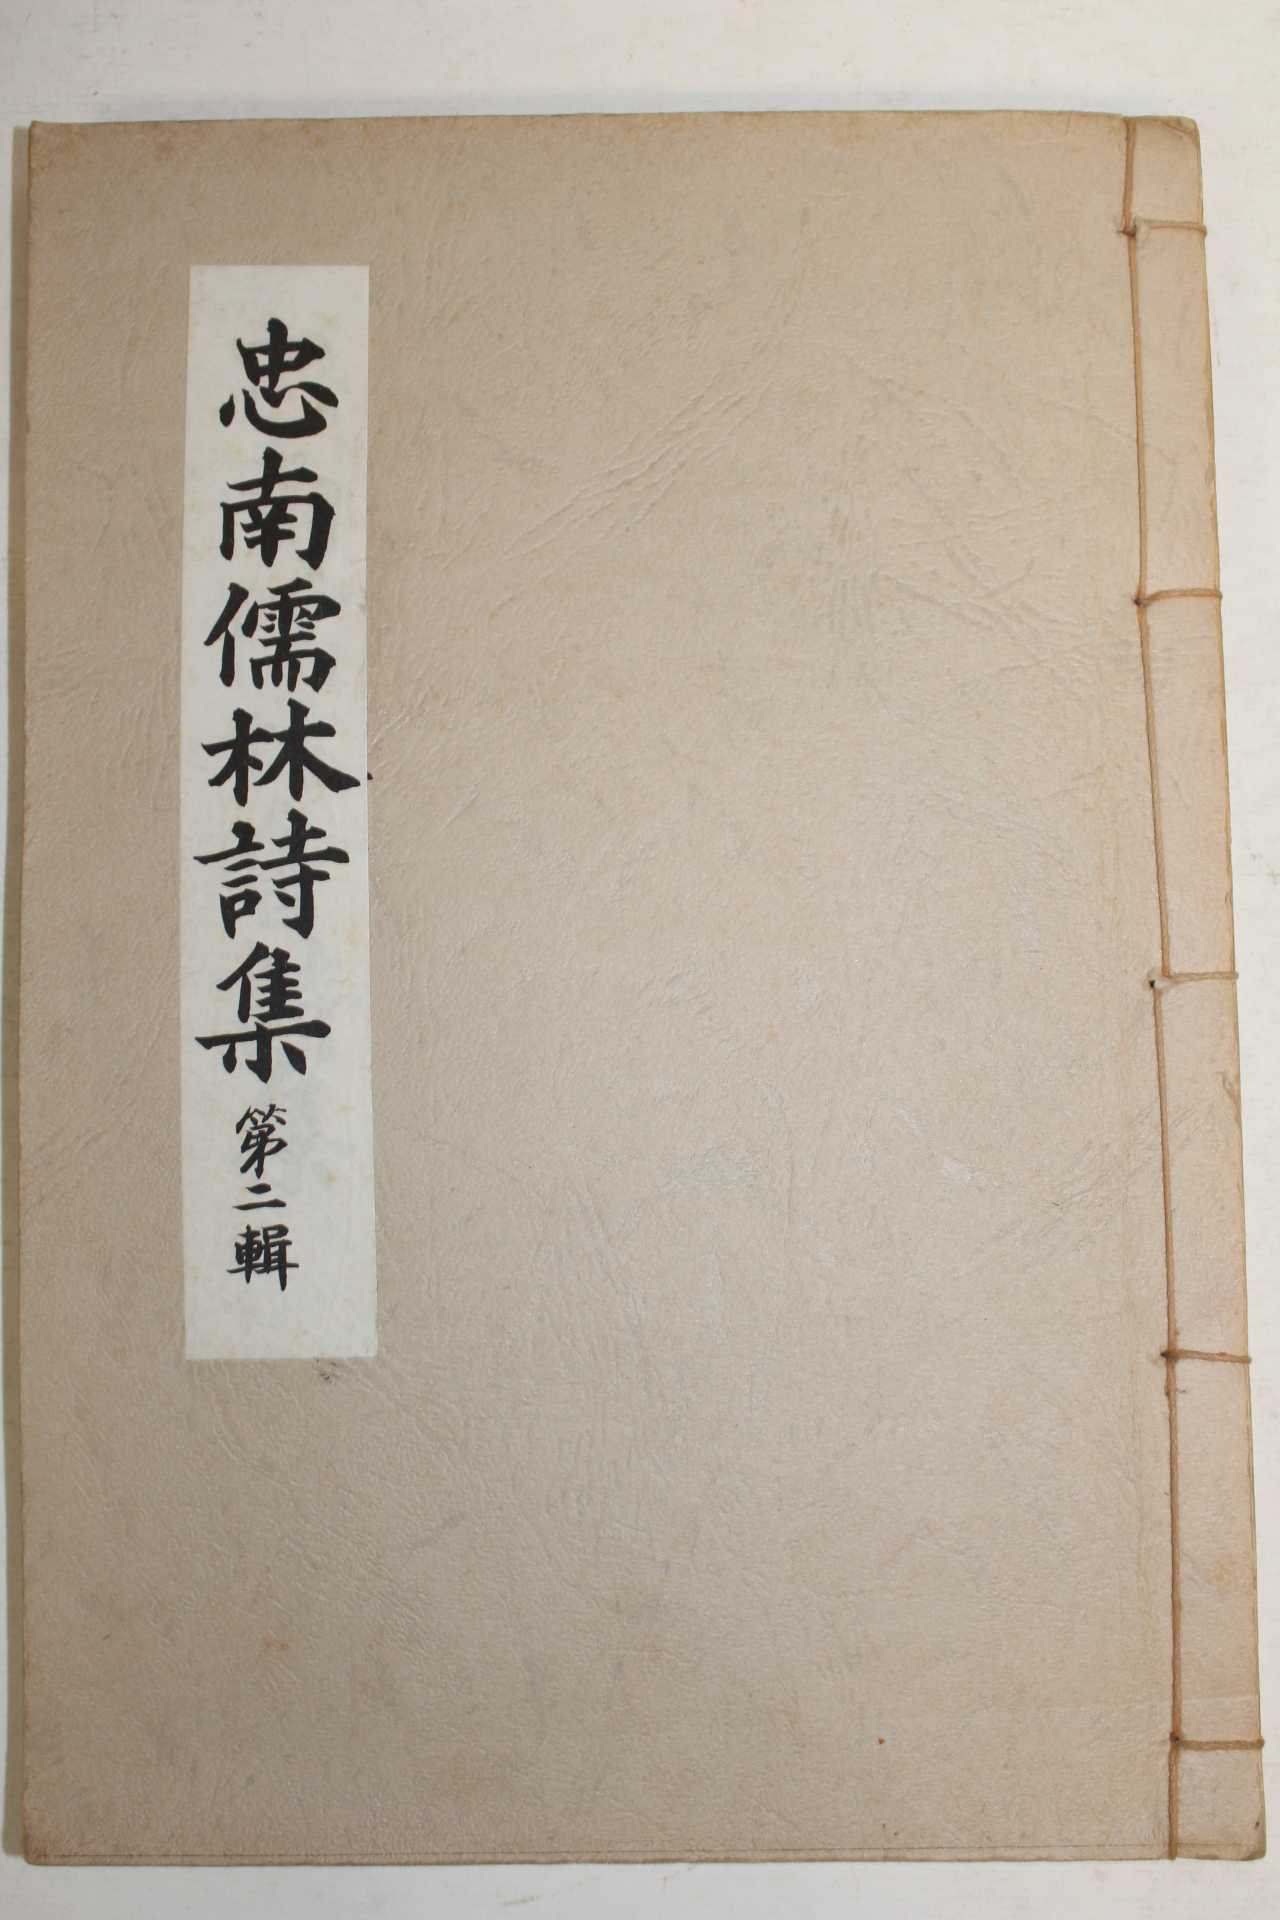 忠南儒林詩集 第二輯